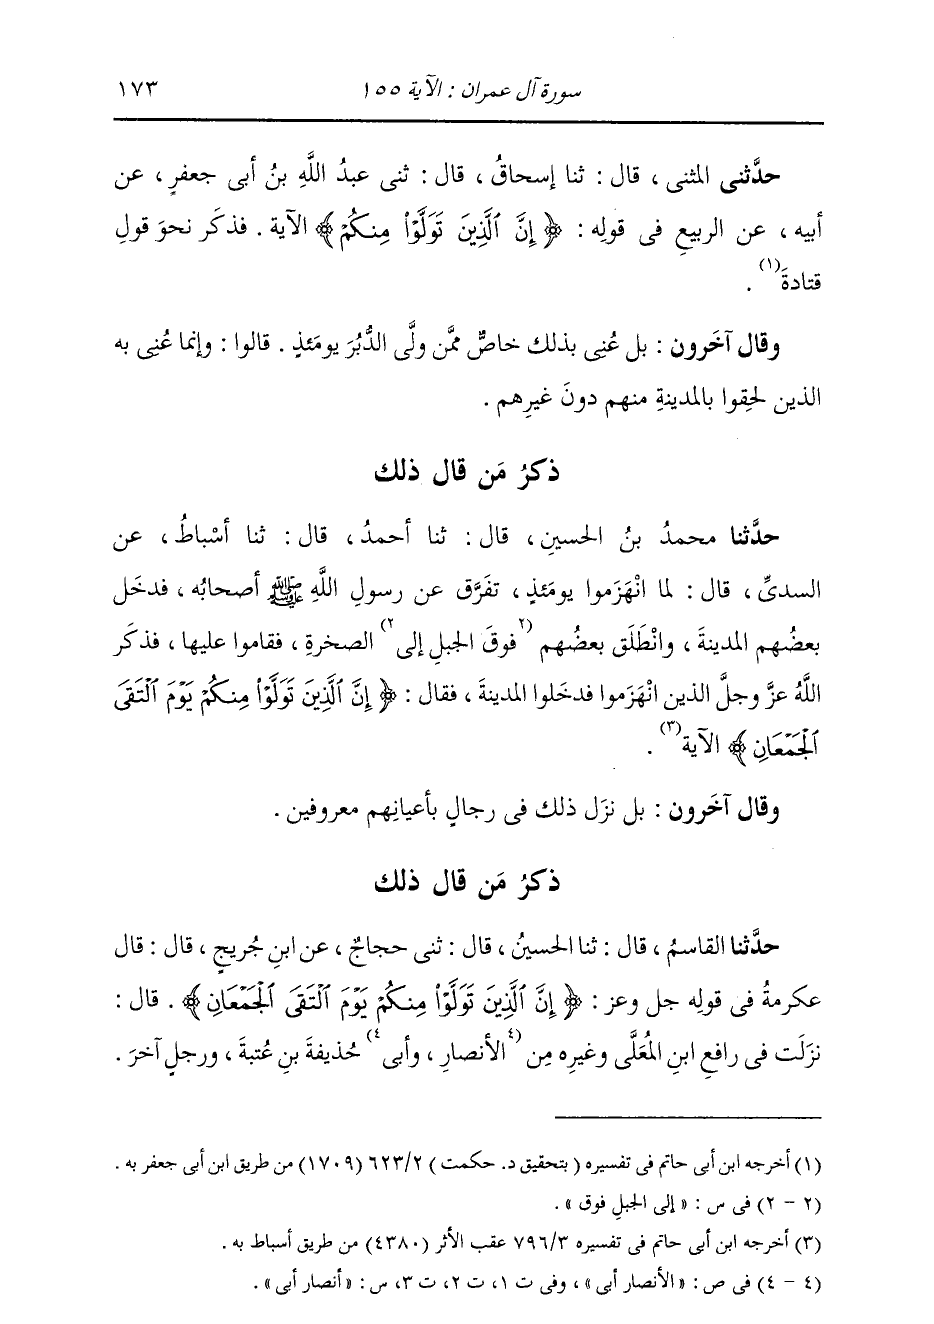 سورة آل عمران : الآية ١٥٥ ١٧٣
حدَّثنى المثنى ، قال : ثنا إسحاقُ ، قال : ثنى عبدُ اللَّهِ بنُ أبى جعفرٍ ، عن
أبيه ، عن الربيعِ فى قولِه : ﴿ إِنَّ ٱلَّذِينَ تَوَلَّوْا۟ مِنكُمْ ﴾ الآية . فذكَر نحوَ قولِ
قتادةَ(١) .
وقال آخَرون : بل عُنِى بذلك خاصٌّ ممَّن ولَّى الدُّبُرَ يومَئذٍ . قالوا : وإنما عُنِى به
الذين لحِقوا بالمدينةِ منهم دونَ غيرِهم .
ذكرُ مَن قال ذلك
حدَّثنا محمدُ بنُ الحسينِ ، قال : ثنا أحمدُ ، قال : ثنا أسْباطُ ، عن
السدىِّ ، قال : لما انْهَزَموا يومَئذٍ ، تفَرَّق عن رسولِ اللَّهِ ﷺ أصحابُه ، فدخَل
بعضُهم المدينةَ ، وانْطَلَق بعضُهم (٢فوقَ الجبلِ إلى٢) الصخرةِ ، فقاموا عليها ، فذكَر
اللَّهُ عزَّ وجلَّ الذين انْهَزَموا فدخَلوا المدينةَ ، فقال : ﴿ إِنَّ ٱلَّذِينَ تَوَلَّوْا۟ مِنكُمْ يَوْمَ ٱلْتَقَى
ٱلْجَمْعَانِ ﴾ الآية(٣) .
وقال آخَرون : بل نزَل ذلك فى رجالٍ بأعيانِهم معروفين .
ذكرُ مَن قال ذلك
حدَّثنا القاسمُ ، قال : ثنا الحسينُ ، قال : ثنى حجاجٌ ، عن ابنِ جُريجٍ ، قال : قال
عكرمةُ فى قولِه جل وعز : ﴿ إِنَّ ٱلَّذِينَ تَوَلَّوْا۟ مِنكُمْ يَوْمَ ٱلْتَقَى ٱلْجَمْعَانِ ﴾ . قال :
نزَلَت فى رافعِ ابنِ المُعَلَّى وغيرِه مِن (٤الأنصارِ ، وأبى٤) حُذيفةَ بنِ عُتبةَ ، ورجلٍ آخرَ .
(١) أخرجه ابن أبى حاتم فى تفسيره ( بتحقيق د. حكمت ) ٦٢٣/٢ (١٧٠٩) من طريق ابن أبى جعفر به .
(٢ - ٢) فى س : « إلى الجبلِ فوق » .
(٣) أخرجه ابن أبى حاتم فى تفسيره ٧٩٦/٣ عقب الأثر (٤٣٨٠) من طريق أسباط به .
(٤ - ٤) فى ص : « الأنصار أبى » ، وفى ت ١، ت ٢، ت ٣، س : « أنصار أبى » .